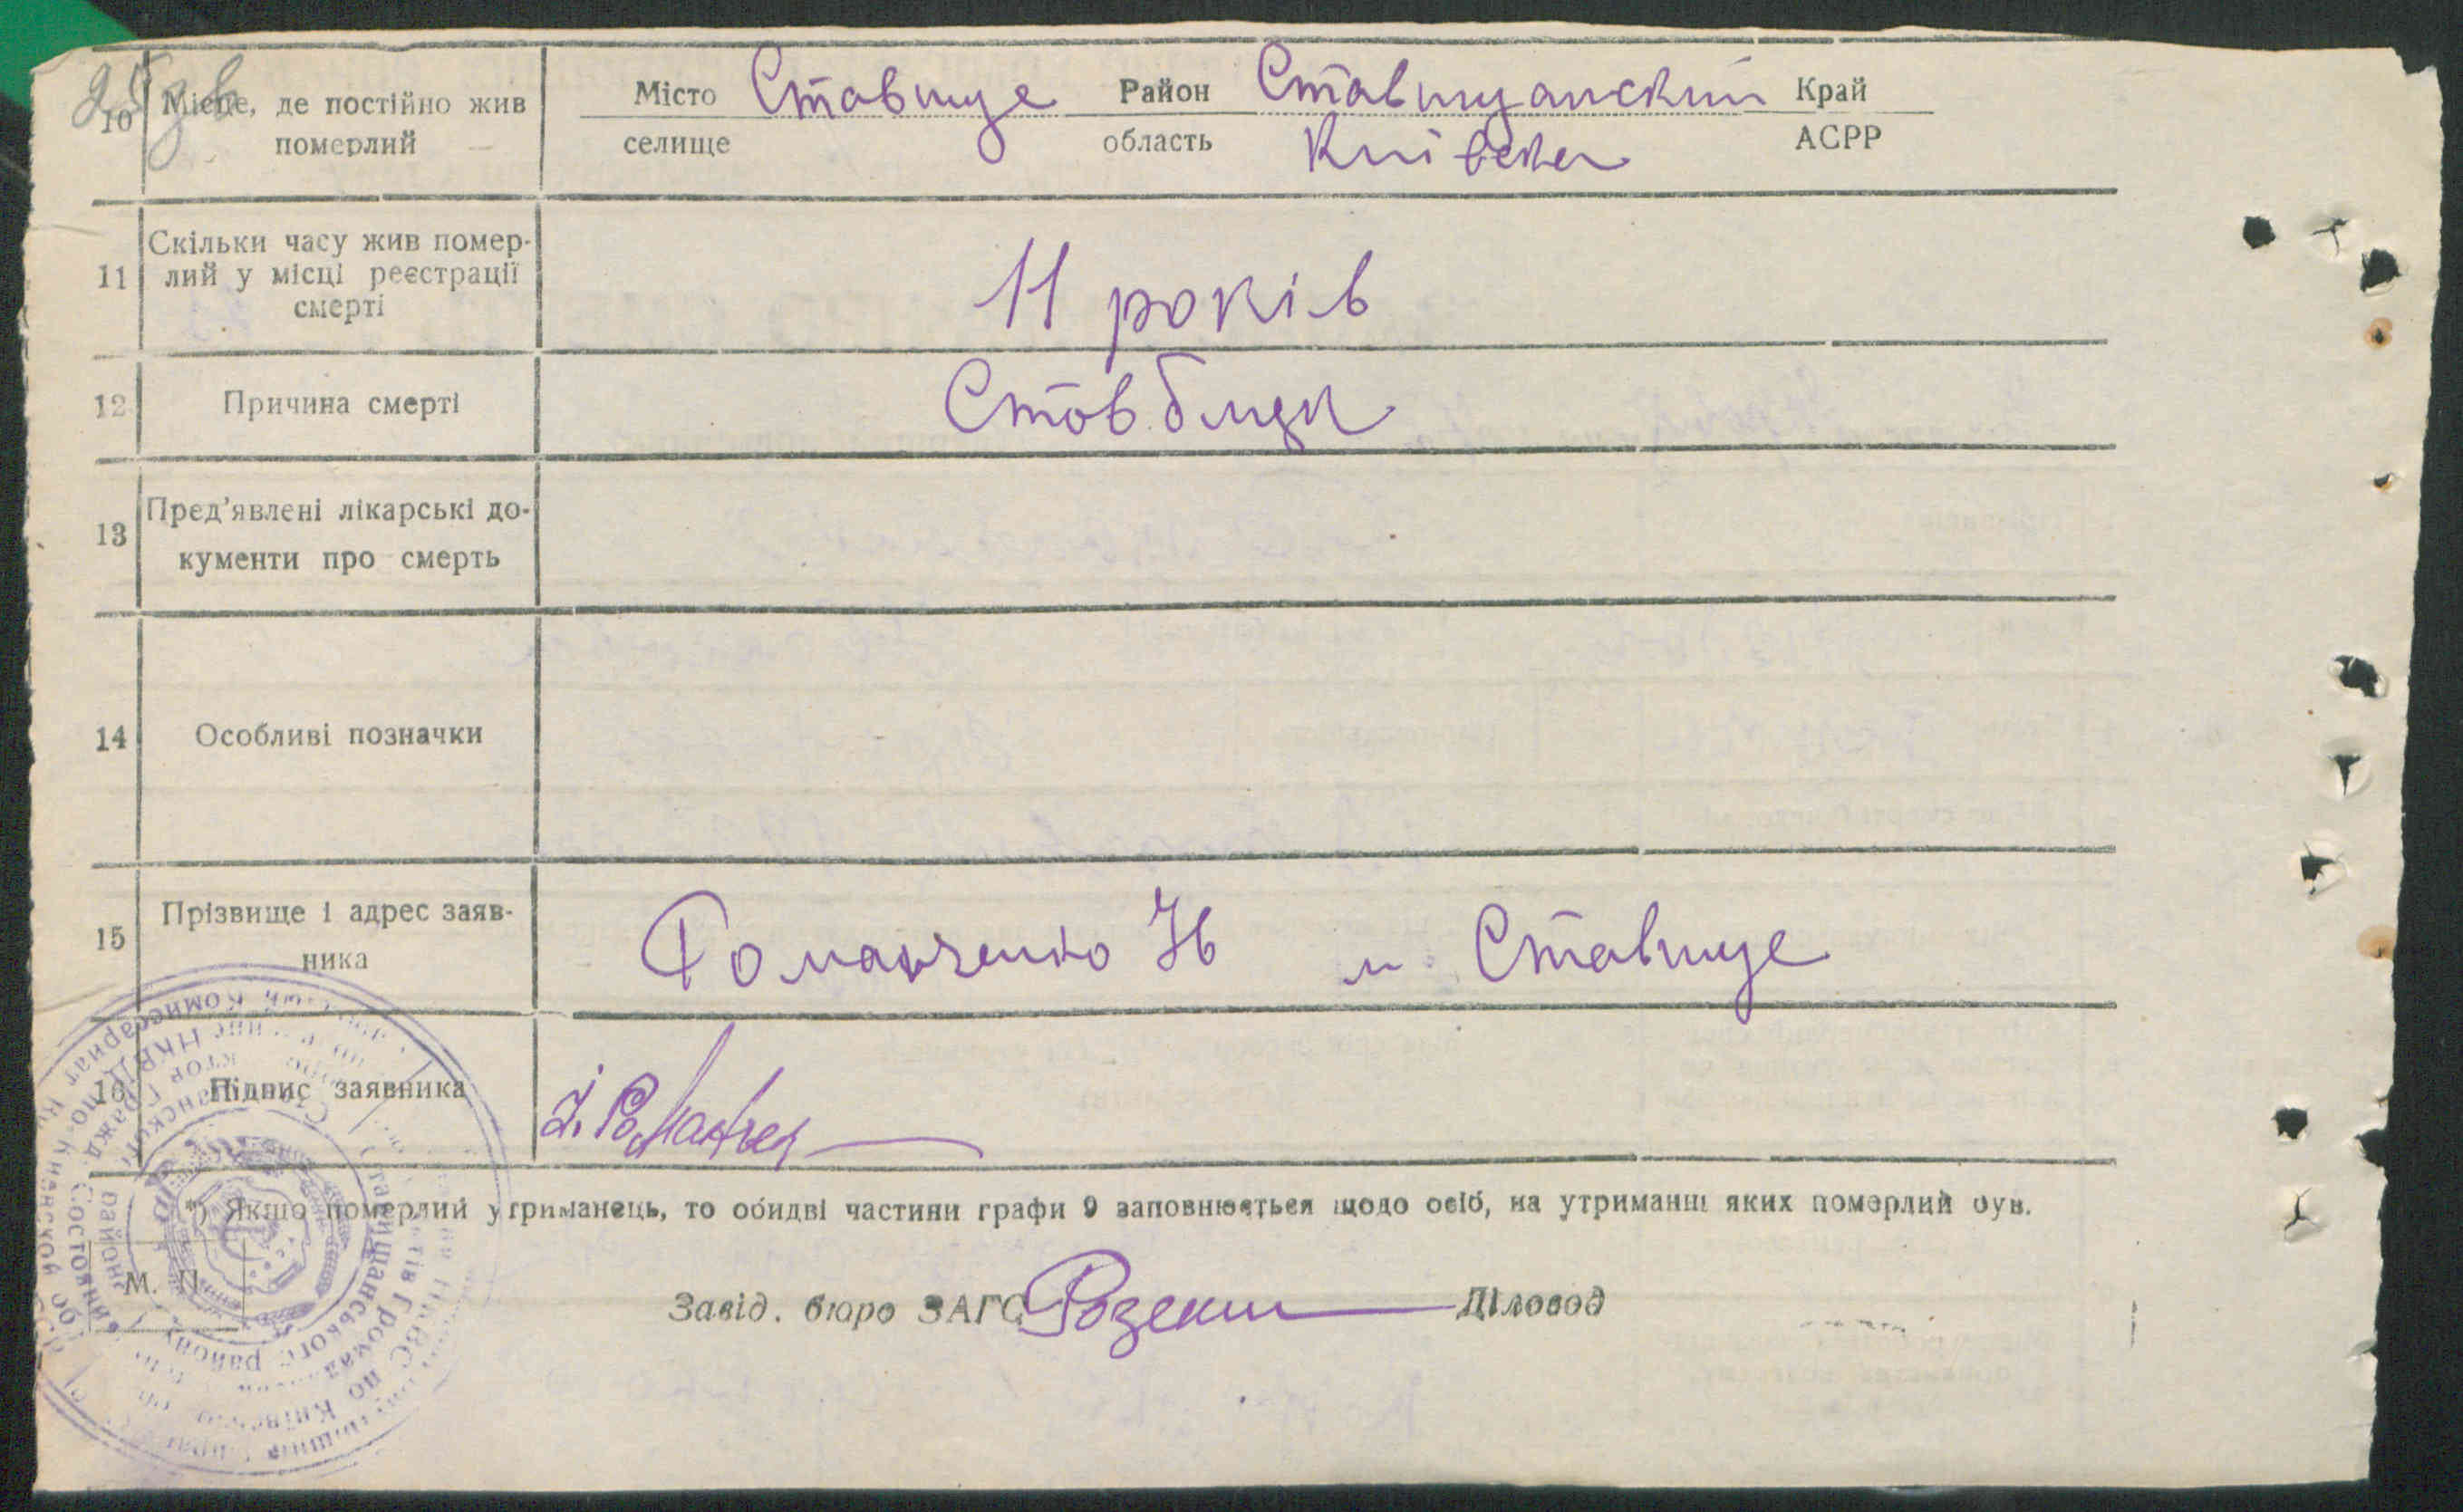 25 зв
10 Місце, де постійно жив померлий
Місто Ставище Район Ставищанский Край
селище область Київська АСРР
11 Скільки часу жив помер-
лий у місці реєстрації
смерті
11 років
12 Причина смерті
Стовбняк
13 Пред'явлені лікарські до-
кументи про смерть
14 Особливі позначки
15 Прізвище і адрес заяв-
ника
Романченко м. Ставище
16 Підпис заявника
*) Якщо померлий утриманець, то обидві частини графи 9 заповнюється щодо осіб, на утриманні яких померлий був.
М. П.
Завід. бюро ЗАГС Діловод